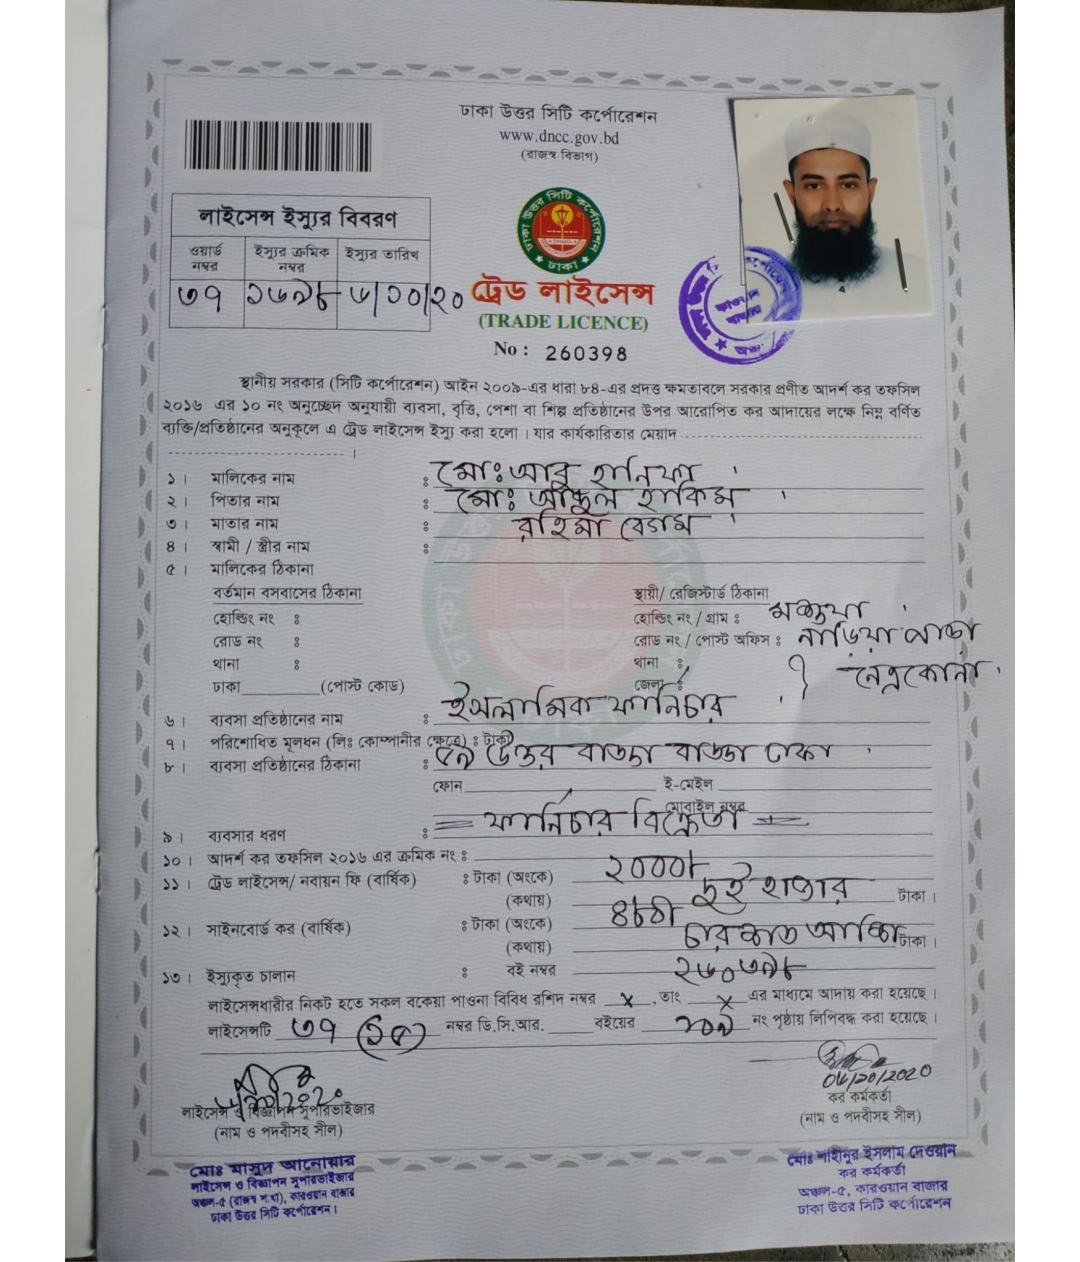 ঢাকা উত্তর সিটি কর্পোরেশন
www.dncc.gov.bd
(রাজস্ব বিভাগ)
লাইসেন্স ইস্যুর বিবরণ
ওয়ার্ড নম্বর
ইস্যুর ক্রমিক নম্বর
ইস্যুর তারিখ
৩৭
৬/১০/২০
ঢাকা উত্তর সিটি কর্পোরেশন
ঢাকা
ট্রেড লাইসেন্স
(TRADE LICENCE)
No : 260398
স্থানীয় সরকার (সিটি কর্পোরেশন) আইন ২০০৯-এর ধারা ৮৪-এর প্রদত্ত ক্ষমতাবলে সরকার প্রণীত আদর্শ কর তফসিল
২০১৬ এর ১০ নং অনুচ্ছেদ অনুযায়ী ব্যবসা, বৃত্তি, পেশা বা শিল্প প্রতিষ্ঠানের উপর আরোপিত কর আদায়ের লক্ষে নিম্ন বর্ণিত
ব্যক্তি/প্রতিষ্ঠানের অনুকূলে এ ট্রেড লাইসেন্স ইস্যু করা হলো । যার কার্যকারিতার মেয়াদ
।
১ । মালিকের নাম : মোঃ আবু হানিফা
২ । পিতার নাম : মোঃ আব্দুল হাকিম
৩ । মাতার নাম : রহিমা বেগম
৪ । স্বামী / স্ত্রীর নাম :
৫ । মালিকের ঠিকানা
বর্তমান বসবাসের ঠিকানা
হোল্ডিং নং :
রোড নং :
থানা :
ঢাকা (পোস্ট কোড)
স্থায়ী/ রেজিস্টার্ড ঠিকানা
হোল্ডিং নং / গ্রাম :
রোড নং / পোস্ট অফিস :
থানা :
জেলা : নেত্রকোনা
৬ । ব্যবসা প্রতিষ্ঠানের নাম : ইসলামিক ফার্নিচার
৭ । পরিশোধিত মূলধন (লিঃ কোম্পানীর ক্ষেত্রে) : টাকা
৮ । ব্যবসা প্রতিষ্ঠানের ঠিকানা : উত্তর বাড্ডা বাড্ডা ঢাকা
ফোন ই-মেইল
মোবাইল নম্বর
৯ । ব্যবসার ধরণ : = ফার্নিচার বিক্রেতা =
১০ । আদর্শ কর তফসিল ২০১৬ এর ক্রমিক নং :
১১ । ট্রেড লাইসেন্স/ নবায়ন ফি (বার্ষিক) : টাকা (অংকে) ২০০০/-
(কথায়) দুই হাজার টাকা ।
১২ । সাইনবোর্ড কর (বার্ষিক) : টাকা (অংকে) ৪৮০/-
(কথায়) চারশত আশি টাকা ।
১৩ । ইস্যুকৃত চালান : বই নম্বর ২৬০৩৯৮
লাইসেন্সধারীর নিকট হতে সকল বকেয়া পাওনা বিবিধ রশিদ নম্বর x , তাং x এর মাধ্যমে আদায় করা হয়েছে ।
লাইসেন্সটি ৩৭ নম্বর ডি.সি.আর. বইয়ের নং পৃষ্ঠায় লিপিবদ্ধ করা হয়েছে ।
লাইসেন্স ও বিজ্ঞাপন সুপারভাইজার
(নাম ও পদবীসহ সীল)
মোঃ মাসুদ আনোয়ার
লাইসেন্স ও বিজ্ঞাপন সুপারভাইজার
অঞ্চল-৫ (রাজস্ব শাখা), কারওয়ান বাজার
ঢাকা উত্তর সিটি কর্পোরেশন ।
06/10/2020
কর কর্মকর্তা
(নাম ও পদবীসহ সীল)
মোঃ শাহীনুর ইসলাম দেওয়ান
কর কর্মকর্তা
অঞ্চল-৫, কারওয়ান বাজার
ঢাকা উত্তর সিটি কর্পোরেশন